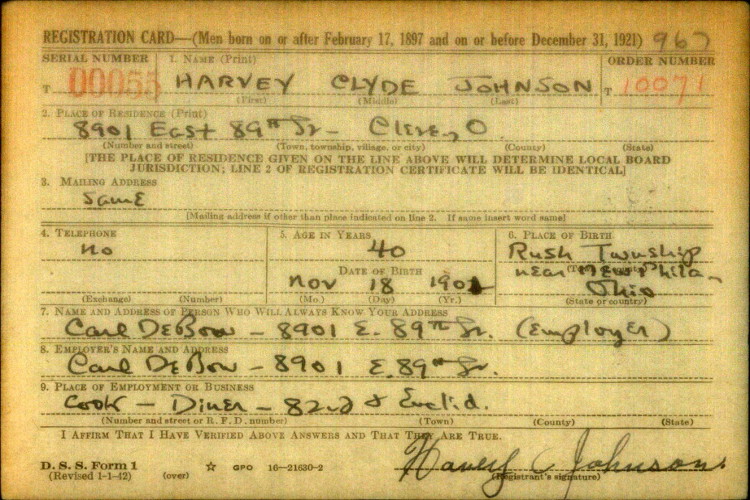 REGISTRATION CARD—(Men born on or after February 17, 1897 and on or before December 31, 1921) 967
SERIAL NUMBER 1. NAME (Print) ORDER NUMBER
T 00055 HARVEY CLYDE JOHNSON T 10071
(First) (Middle) (Last)
2. PLACE OF RESIDENCE (Print)
8901 East 89th St- Cleve, O
(Number and street) (Town, township, village, or city) (County) (State)
[THE PLACE OF RESIDENCE GIVEN ON THE LINE ABOVE WILL DETERMINE LOCAL BOARD
JURISDICTION; LINE 2 OF REGISTRATION CERTIFICATE WILL BE IDENTICAL]
3. MAILING ADDRESS
Same
[Mailing address if other than place indicated on line 2. If same insert word same]
4. TELEPHONE 5. AGE IN YEARS 6. PLACE OF BIRTH
no 40 Rush Township
DATE OF BIRTH near Phila-
Nov 18 1901 Ohio
(Exchange) (Number) (Mo.) (Day) (Yr.) (State or country)
7. NAME AND ADDRESS OF PERSON WHO WILL ALWAYS KNOW YOUR ADDRESS
Carl DeBow - 8901 E. 89th St. (Employer)
8. EMPLOYER'S NAME AND ADDRESS
Carl DeBow - 8901 E. 89th St.
9. PLACE OF EMPLOYMENT OR BUSINESS
Cook - Diner - 82nd & Euclid.
(Number and street or R. F. D. number) (Town) (County) (State)
I AFFIRM THAT I HAVE VERIFIED ABOVE ANSWERS AND THAT THEY ARE TRUE.
D. S. S. Form 1 ☆ GPO 16—21630-2 Harvey C Johnson
(Revised 1-1-42) (over) (Registrant's signature)